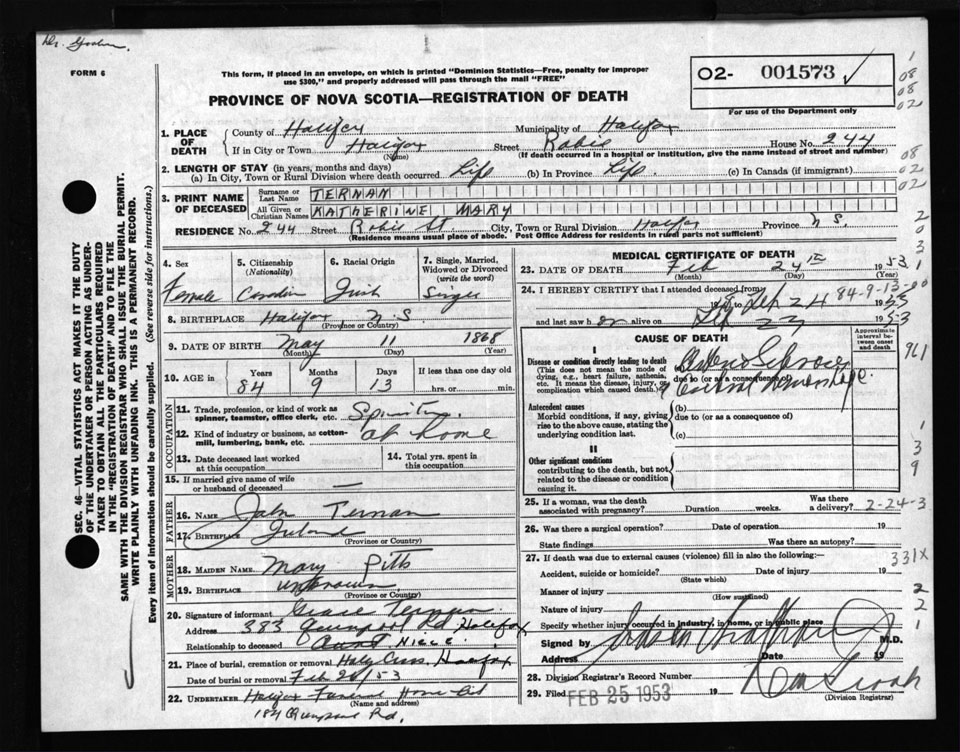 FORM 6
This form, if placed in an envelope, on which is printed "Dominion Statistics—Free, penalty for improper
use $300," and properly addressed will pass through the mail "FREE"
PROVINCE OF NOVA SCOTIA—REGISTRATION OF DEATH
O2- 001573 ✓
For use of the Department only
1. PLACE OF DEATH
County of Halifax Municipality of Halifax
If in City or Town Halifax Street Robie House No. 244
(Name) (If death occurred in a hospital or institution, give the name instead of street and number)
2. LENGTH OF STAY (in years, months and days)
(a) In City, Town or Rural Division where death occurred Life (b) In Province Life. (c) In Canada (if immigrant)
3. PRINT NAME OF DECEASED
Surname or Last Name TERNAN
All Given or Christian Names KATHERINE MARY
RESIDENCE No. 244 Street Robie St. City, Town or Rural Division Halifax Province N.S.
(Residence means usual place of abode. Post Office Address for residents in rural parts not sufficient)
4. Sex
Female
5. Citizenship
(Nationality)
Canadian
6. Racial Origin
Irish
7. Single, Married,
Widowed or Divorced
(write the word)
Single
8. BIRTHPLACE Halifax N.S.
(Province or Country)
9. DATE OF BIRTH May 11 1868
(Month) (Day) (Year)
10. AGE in Years Months Days If less than one day old
84 9 13 hrs. or min.
OCCUPATION
11. Trade, profession, or kind of work as
spinner, teamster, office clerk, etc. Spinster.
12. Kind of industry or business, as cotton-
mill, lumbering, bank, etc. at home
13. Date deceased last worked
at this occupation
14. Total yrs. spent in
this occupation
15. If married give name of wife
or husband of deceased —
FATHER
16. NAME John Ternan
17. BIRTHPLACE Ireland
(Province or Country)
MOTHER
18. MAIDEN NAME Mary Pitts
19. BIRTHPLACE unknown
(Province or Country)
20. Signature of informant Grace Ternan
Address 383 Quinpool Rd Halifax
Relationship to deceased Aunt. Niece.
21. Place of burial, cremation or removal Holy Cross. Halifax
Date of burial or removal Feb 26/53
22. UNDERTAKER Halifax Funeral Home Ltd
(Name and address)
184 Quinpool Rd.
MEDICAL CERTIFICATE OF DEATH
23. DATE OF DEATH Feb 24th 1953
(Month) (Day) (Year)
24. I HEREBY CERTIFY that I attended deceased from
84-9-13-00
to Feb 24 1953
and last saw her alive on Feb 1953
CAUSE OF DEATH
Approximate
interval between
onset and
death
I
Disease or condition directly leading to death
(This does not mean the mode of
dying, e.g., heart failure, asthenia,
etc. It means the disease, injury, or
complication which caused death.)
due to (or as a consequence of)
Antecedent causes
Morbid conditions, if any, giving
rise to the above cause, stating the
underlying condition last.
(b)
due to (or as a consequence of)
(c)
II
Other significant conditions
contributing to the death, but not
related to the disease or condition
causing it.
25. If a woman, was the death
associated with pregnancy? Duration weeks. Was there
a delivery? 2-24-3
26. Was there a surgical operation? Date of operation 19
State findings Was there an autopsy?
27. If death was due to external causes (violence) fill in also the following:—
Accident, suicide or homicide? Date of injury 19
(State which)
Manner of injury
(How sustained)
Nature of injury
Specify whether injury occurred in industry, in home, or in public place
Signed by M.D.
Address Date 19
28. Division Registrar's Record Number
29. Filed FEB 25 1953 19
(Division Registrar)
331X
961
SEC. 46—VITAL STATISTICS ACT MAKES IT THE DUTY
OF THE UNDERTAKER OR PERSON ACTING AS UNDER-
TAKER TO OBTAIN ALL THE PARTICULARS REQUIRED
IN THE "REGISTRATION OF DEATH" AND TO FILE THE
SAME WITH THE DIVISION REGISTRAR WHO SHALL ISSUE THE BURIAL PERMIT.
WRITE PLAINLY WITH UNFADING INK. THIS IS A PERMANENT RECORD.
Every item of information should be carefully supplied. (See reverse side for instructions.)